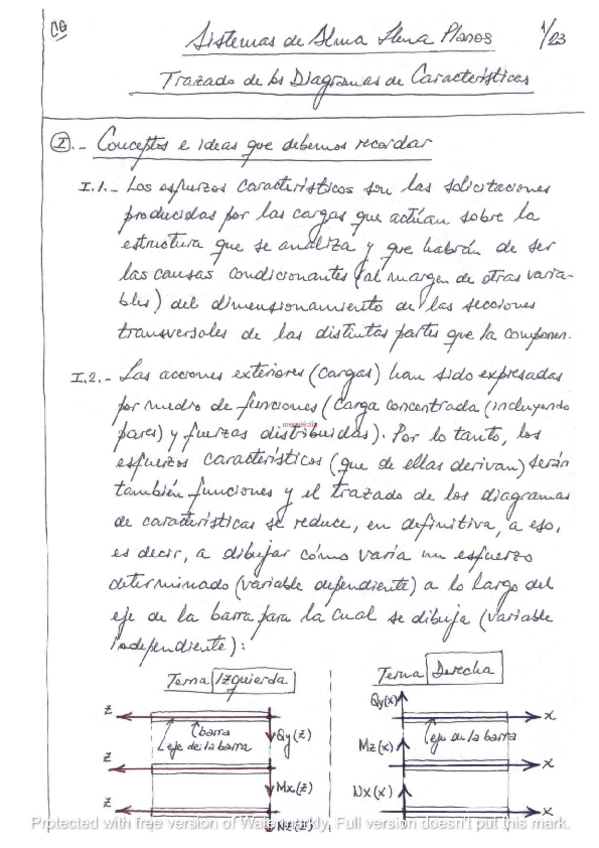 CG
Sistemas de Alma Llena Planos 1/23
Trazado de los Diagramas de Características
I.- Conceptos e ideas que debemos recordar
I.1.- Los esfuerzos característicos son las solicitaciones
producidas por las cargas que actúan sobre la
estructura que se analiza y que habrán de ser
las causas condicionantes (al margen de otras varia-
bles) del dimensionamiento de las secciones
transversales de las distintas partes que la componen.
I.2.- Las acciones exteriores (cargas) han sido expresadas
por medio de funciones (carga concentrada (incluyendo
pares) y fuerzas distribuidas). Por lo tanto, los
esfuerzos característicos (que de ellas derivan) serán
también funciones y el trazado de los diagramas
de características se reduce, en definitiva, a eso,
es decir, a dibujar cómo varía un esfuerzo
determinado (variable dependiente) a lo largo del
eje de la barra para la cual se dibuja (variable
independiente):
Terna Izquierda
Terna Derecha
z
barra
eje de la barra
Qy(z)
z
Mx(z)
z
Nz(z)
Qy(x)
eje de la barra
x
Mz(x)
x
Nx(x)
x
Protected with free version of Watermarkly. Full version doesn't put this mark.